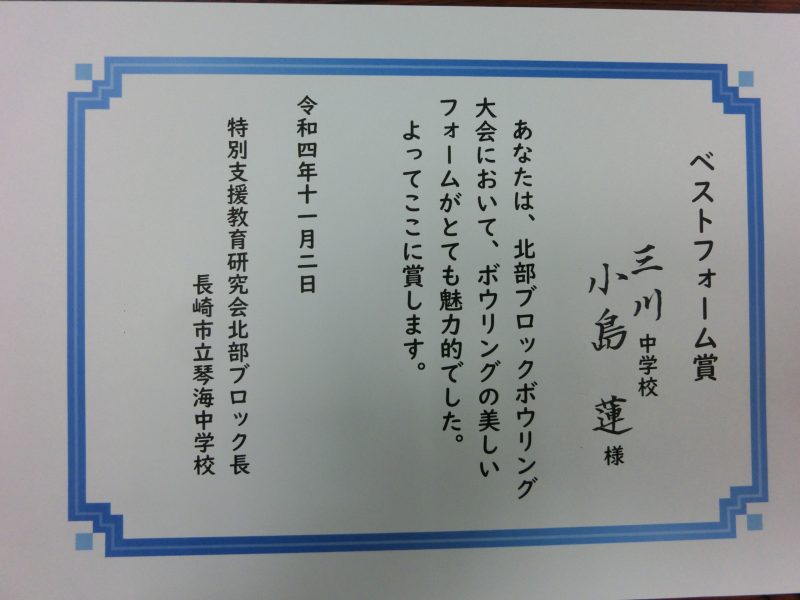 ベストフォーム賞
三川中学校
小島 蓮 様
あなたは、北部ブロックボウリング
大会において、ボウリングの美しい
フォームがとても魅力的でした。
よってここに賞します。
令和四年十一月二日
特別支援教育研究会北部ブロック長
長崎市立琴海中学校